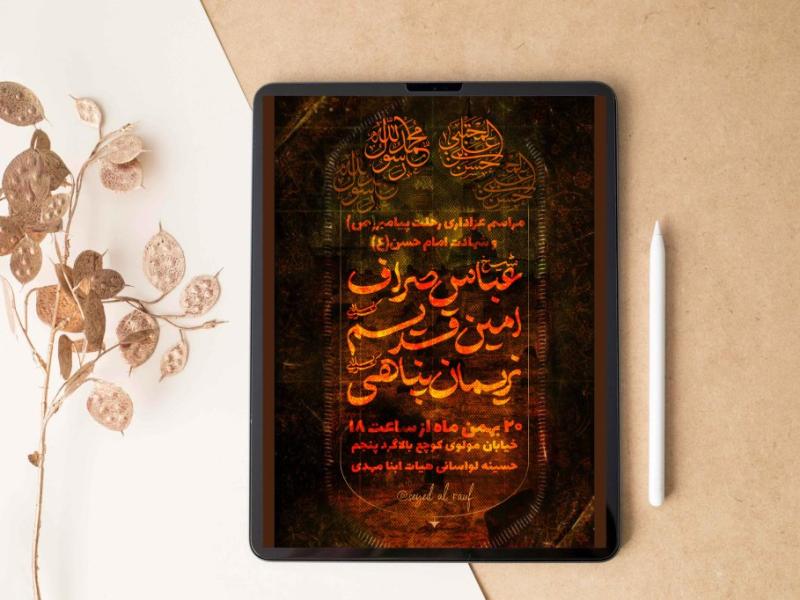 محمد رسول الله
المجتبی حسن بن علی
مراسم عزاداری رحلت پیامبر(ص)
و شهادت امام حسن(ع)
شیخ عباس صراف
امین قدیم کربلایی
نریمان پناهی کربلایی
۲۰ بهمن ماه از ساعت ۱۸
خیابان مولوی کوچع بالاگرد پنجم
حسینه لواسانی هیات ابنا مهدی
@seyed_al_rauf